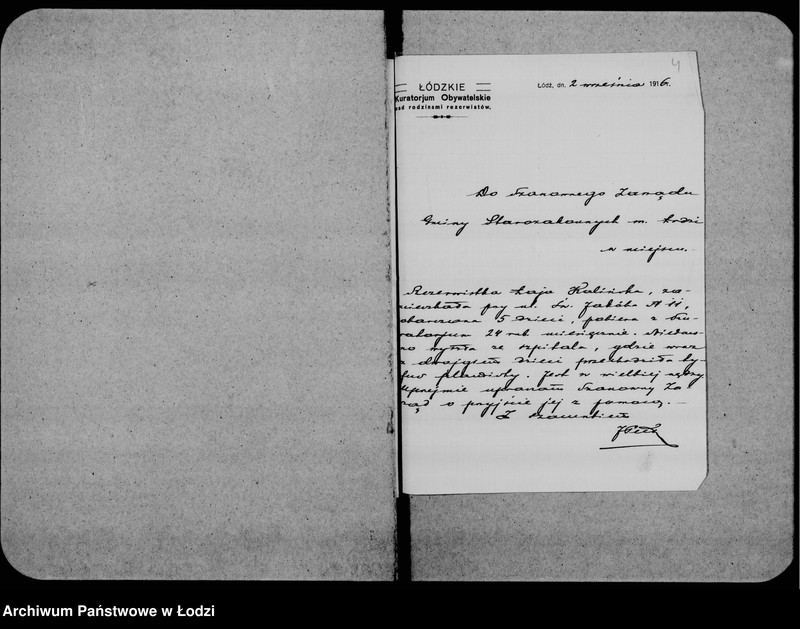 4
ŁÓDZKIE
Kuratorjum Obywatelskie
nad rodzinami rezerwistów.
Łódź, dn. 2 września 1916.
Do Szanownego Zarządu
Gminy Starozakonnych m. Łodzi
w miejscu.
Rezerwistka Łaja Kalińska, za-
mieszkała przy ul. Św. Jakóba № 11,
obarczona 5 dzieci, pobiera z Ku-
ratorjum 24 rub miesięcznie. Niedaw-
no wyszła ze szpitala, gdzie wraz
z dwojgiem dzieci przechodziła ty-
fus plamisty. Jest w wielkiej nędzy
Uprzejmie upraszam Szanowny Za
rząd o przyjście jej z pomocą. —
Z szacunkiem
Archiwum Państwowe w Łodzi